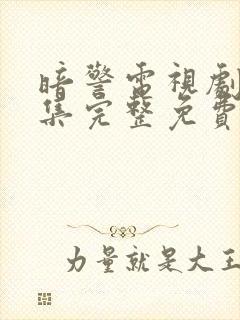 暗警電視劇
集完整免費
力量就是大王